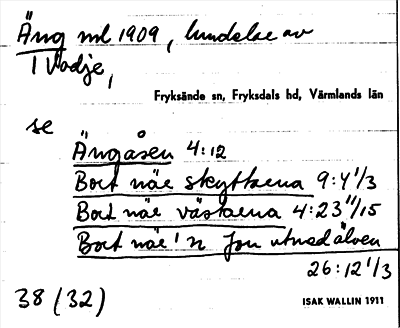 Äng ml 1909, lundelse av
1 Vadje,
Fryksände sn, Fryksdals hd, Värmlands län
se
Ängåsen 4:12
Bort näe skyttaena 9:4 1/3
Bort näe västaena 4:23 11/15
Bort näe'n Jon utmed älven
26:12 1/3
38 (32)
ISAK WALLIN 1911